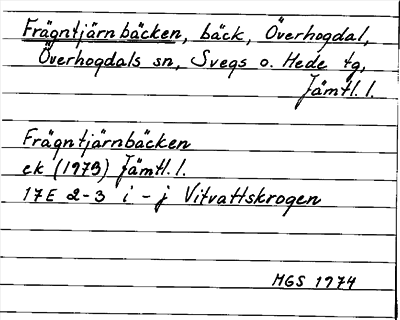 Frägntjärnbäcken, bäck, Överhogdal,
Överhogdals sn, Svegs o. Hede tg,
Jämtl. l.
Frägntjärnbäcken
ek (1973) Jämtl. l.
17E 2-3 i - j Vitvattskrogen
MGS 1974